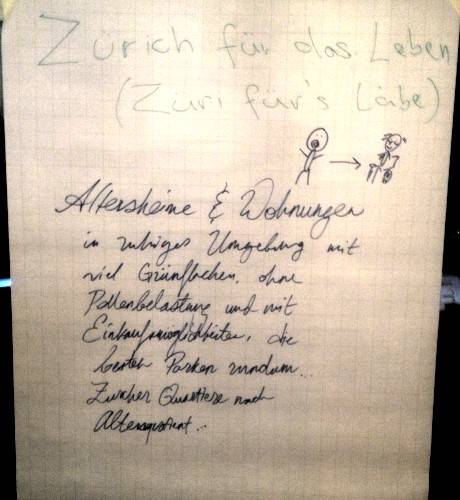 Zürich für das Leben
(Züri für's Läbe)
Altersheime & Wohnungen
in ruhiges Umgebung mit
viel Grünflächen, ohne
Pollenbelastung und mit
Einkaufsmöglichkeiten, die
besten Parken rundum...
Zürcher Quartiere nach